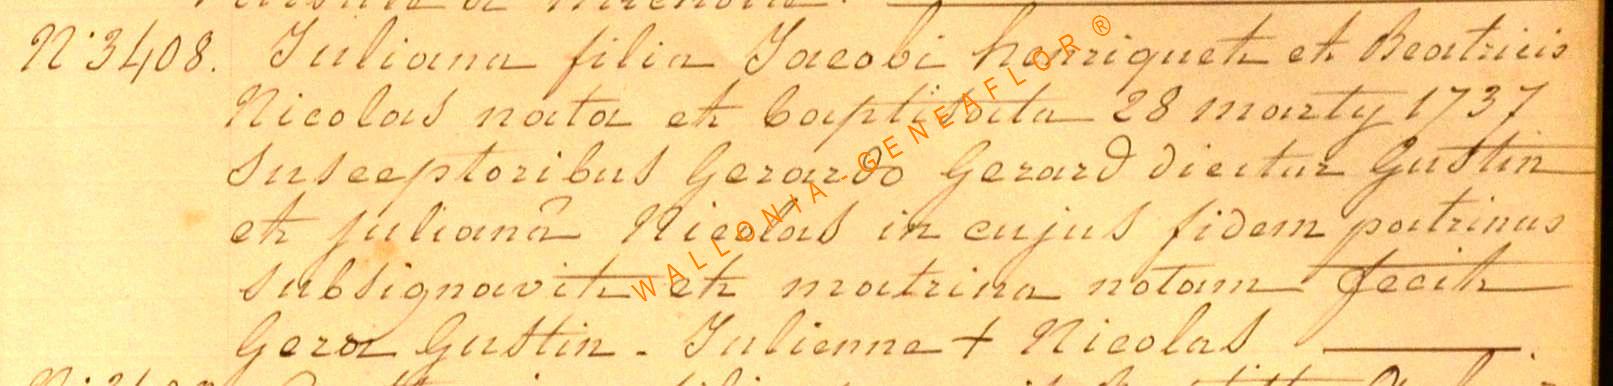 N° 3408. Juliana filia Jacobi henriquet et Beatricis
Nicolas nata et baptisata 28 marty 1737
susceptoribus Gerardo Gerard dictus Gustin
et julianâ Nicolas in cujus fidem patrinus
subsignavit et matrina notam fecit
Gera Gustin - Julienne + Nicolas
WALLONIA-GENEAFLOR®